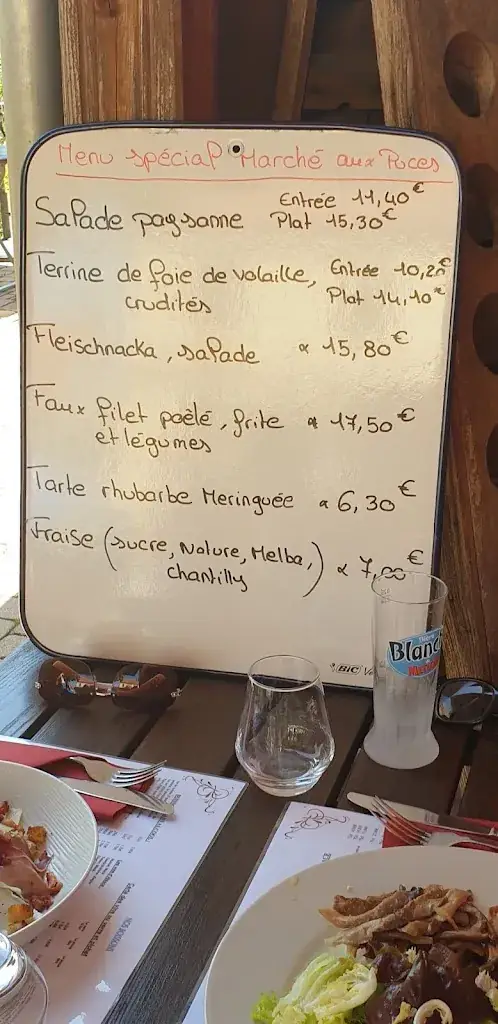 Menu spécial Marché aux Puces
Salade paysanne Entrée 11,40€
Plat 15,30€
Terrine de foie de volaille, Entrée 10,20€
crudités Plat 14,10€
Fleischnacka, salade à 15,80€
Faux filet poêlé, frite à 17,50€
et légumes
Tarte rhubarbe Meringuée à 6,30€
Fraise (sucre, Nature, Melba,
chantilly) à 7,00€
BIC
Blanc
NOS BOISSONS